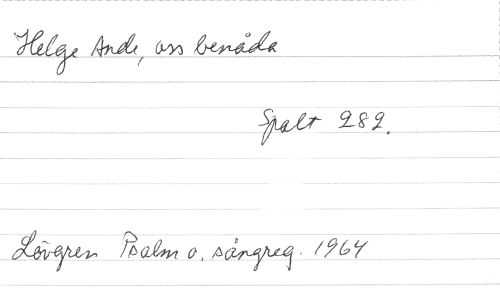 Helge Ande, oss benåda
Spalt 282.
Lövgren Psalm o. sångreg. 1964